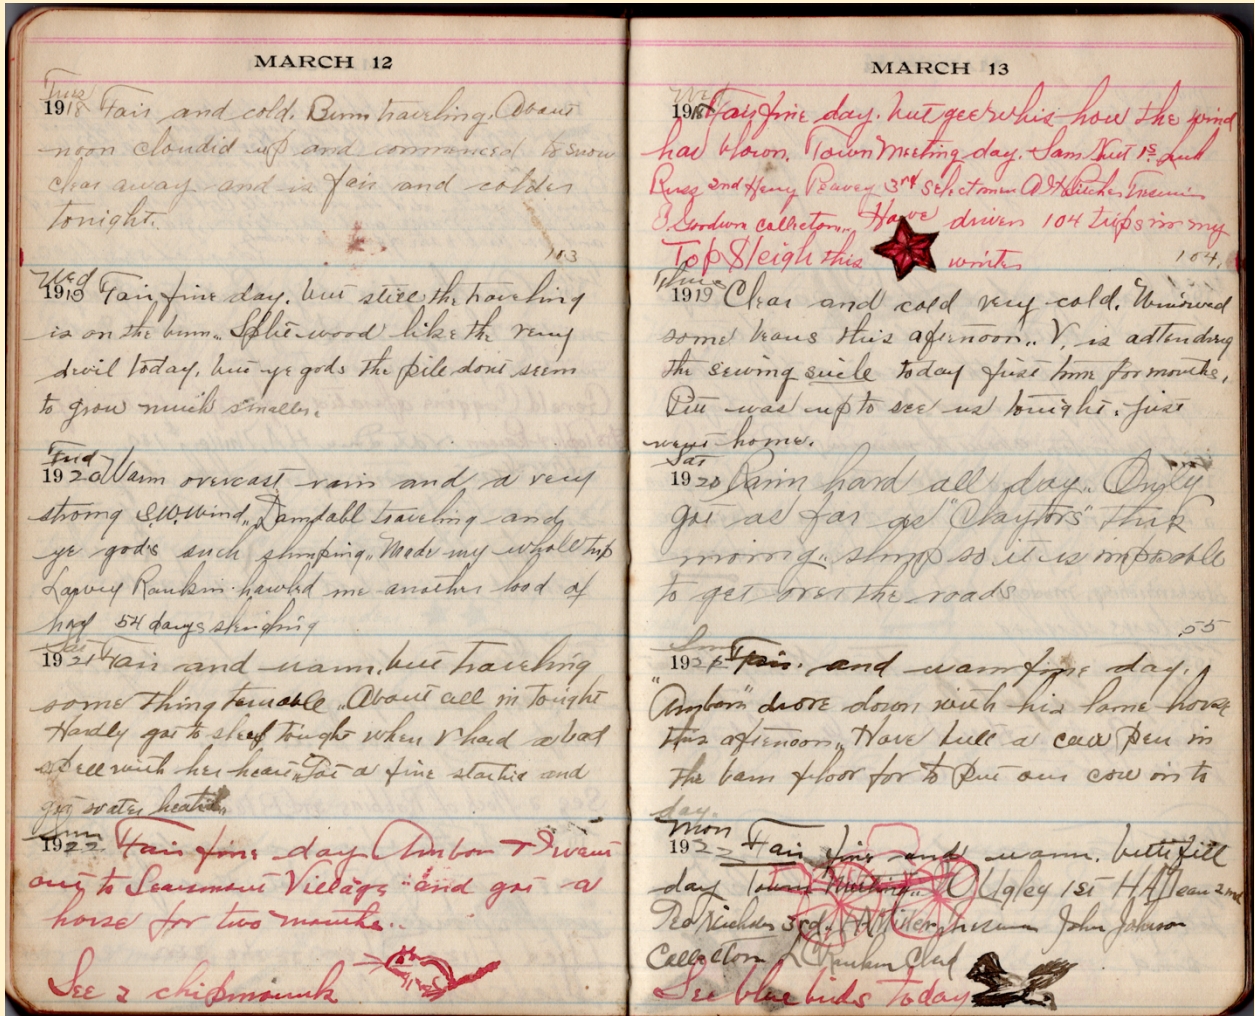 MARCH 12
Tues
1918 Fair and cold. Bum traveling. About
noon cloudid up and commenced to snow
clear away and is fair and colder
tonight.
103
Wed
1919 Fair, fine day. but still the traveling
is on the bum.. Split wood like the very
devil today, but ye gods the pile dont seem
to grow much smaller.
Frid
1920 Warm overcast rain and a very
strong S.W. Wind.. Damdabl traveling and
ye gods such slumping.. Made my whole trip
Rankin hawled me another lood of
hay 54 days sleighing
Sat
1921 Fair and warm. but traveling
some thing terruable.. About all in tonight
Hardly got to sleep tonight when V had a bad
spell with her heart.. Got a fine started and
got water heated..
Sun
1922 Fair fine day Ambon & I went
out to Searsmont Village and got a
horse for two months..
See 2 chipmounk
MARCH 13
Wed
1918 Fair fine day. but gee whis how the wind
has blown. Town Meeting day. Sam 1st
Russ 2nd Henry Peavey 3rd Selectmen
Goodwin collector.. Have driven 104 trips in my
Top Sleigh this winter
104.
Thurs
1919 Clear and cold very cold. Winowed
some beans this afternoon.. V. is adtending
the sewing sucle today first time for months.
was up to see us tonight. just
went home.
Sat
1920 Rain hard all day.. Only
got as far as "Claytors" this
morning.. slump so it is impossable
to get over the roads
55
Sun
1921 Fair. and warm fine day.
"Ambon" drove down with his lame horse
this afternoon.. Have bult a caw pen in
the barn floor for to put our cow in to
day.
Mon
1922 Fair fine and warm. buttifill
day Town Meeting.. Ugley 1st H A 2nd
3rd. John Johnson
Collector
See blue birds today